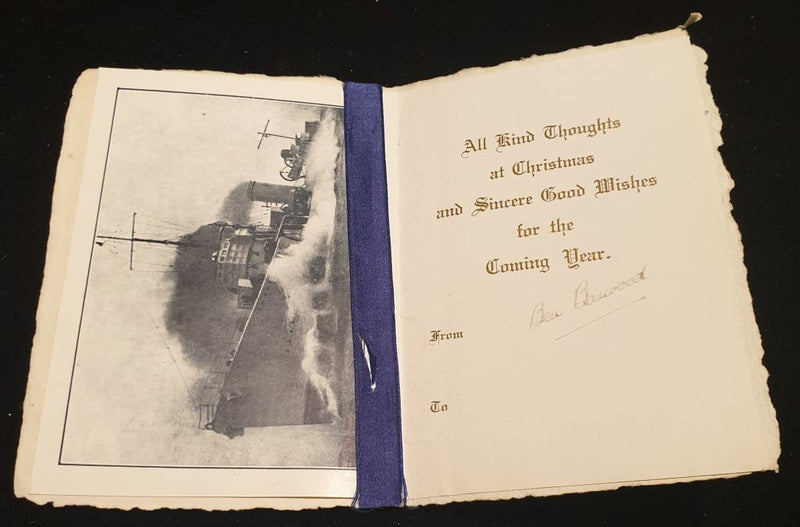 All Kind Thoughts
at Christmas
and Sincere Good Wishes
for the
Coming Year.
Ben Barwood
From
To